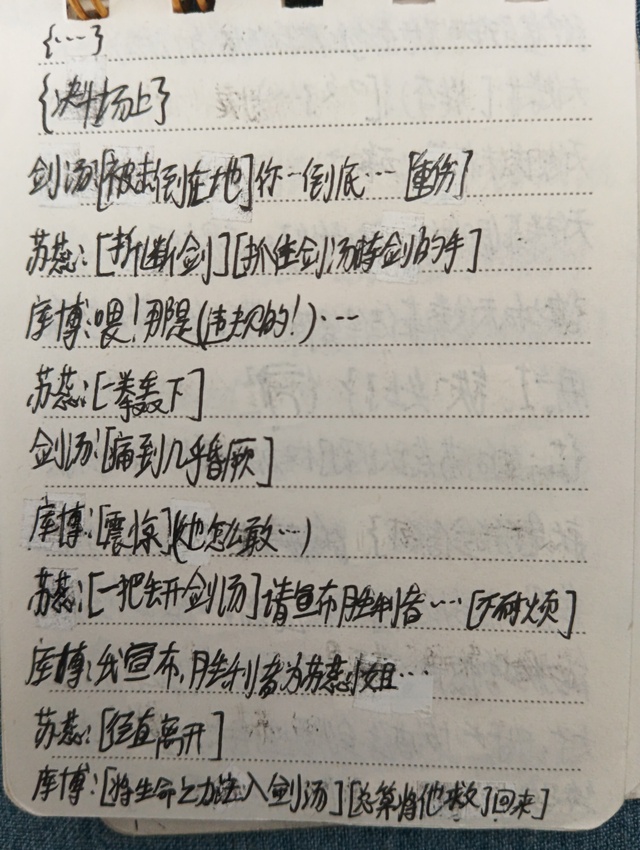 {……}
{决斗场上}
剑汤:[被击倒在地]你…到底…[重伤]
苏蕊:[折断剑][抓住剑汤持剑的手]
库博:喂!那是(违规的!)…
苏蕊:[一拳轰下]
剑汤:[痛到几乎昏厥]
库博:[震惊](她怎么敢…)
苏蕊:[一把丢开剑汤]请宣布胜利者…[不耐烦]
库博:我宣布,胜利者为苏蕊小姐…
苏蕊:[径直离开]
库博:[将生命之力注入剑汤][总算将他救了回来]